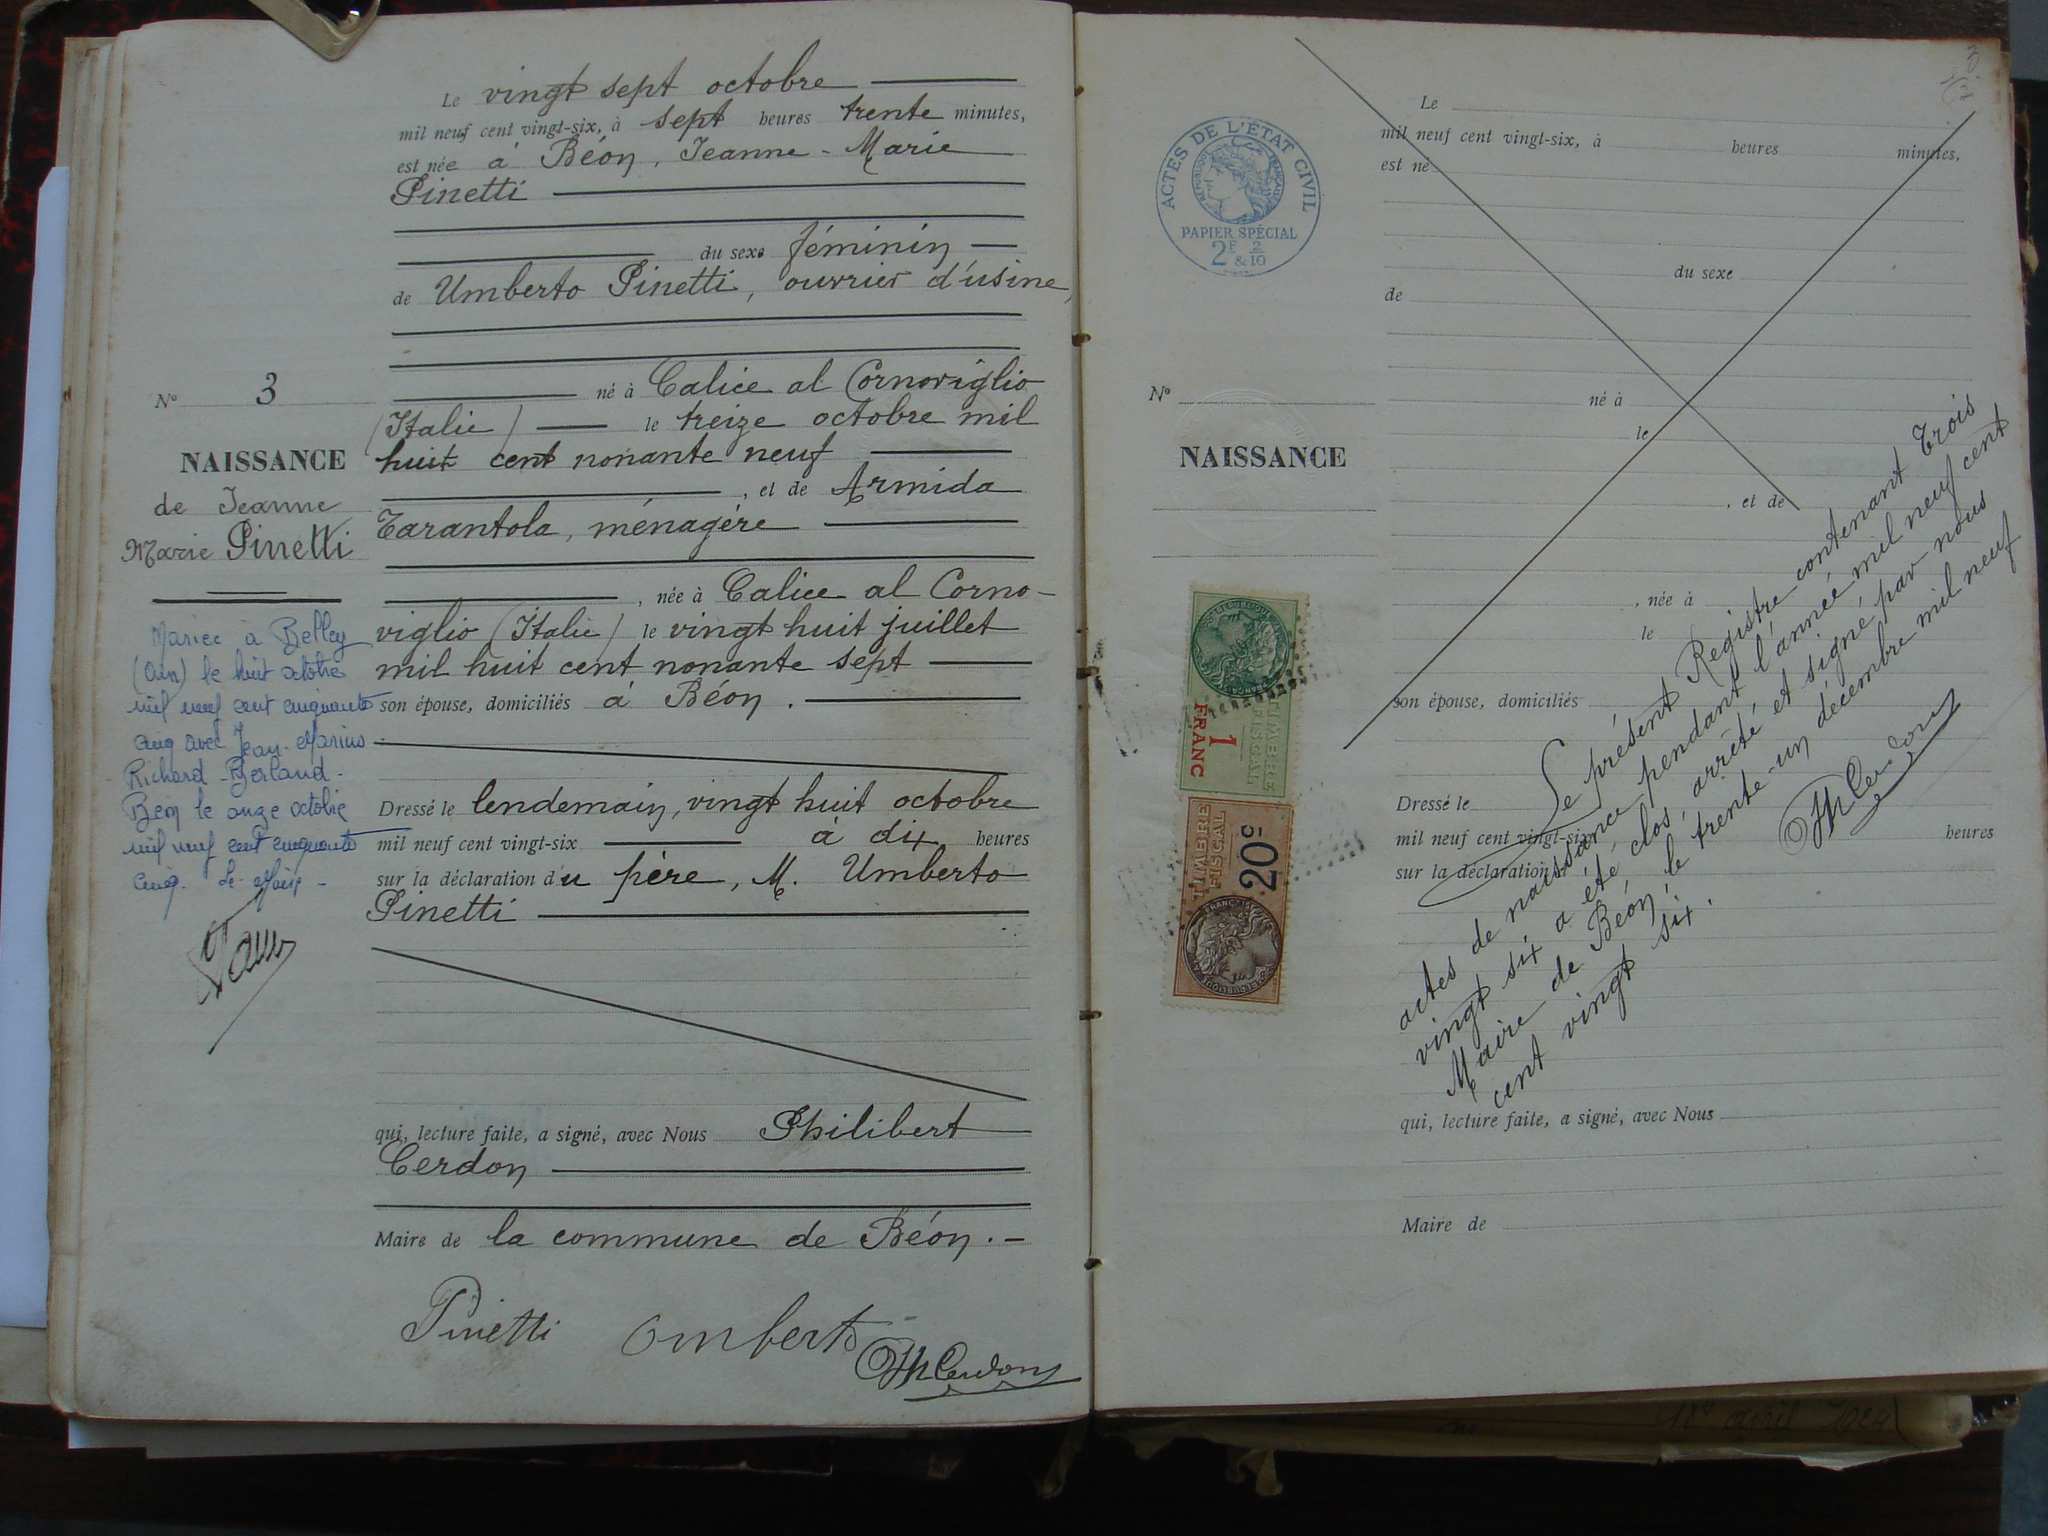 Le vingt sept octobre
mil neuf cent vingt-six, à sept heures trente minutes,
est née à Béon, Jeanne-Marie
Pinetti
du sexe féminin
de Umberto Pinetti, ouvrier d'usine,
né à Calice al Cornoviglio
(Italie) le treize octobre mil
huit cent nonante neuf
, et de Armida
Tarantola, ménagère
, née à Calice al Corno-
viglio (Italie) le vingt huit juillet
mil huit cent nonante sept
son épouse, domiciliés à Béon.
Dressé le lendemain, vingt huit octobre
mil neuf cent vingt-six à dix heures
sur la déclaration du père, M. Umberto
Pinetti
qui, lecture faite, a signé, avec Nous Philibert
Cerdon
Maire de la commune de Béon.
Pinetti Omberto
Ph Cerdon
No 3
NAISSANCE
de Jeanne
Marie Pinetti
Mariée à Belley
(Ain) le huit octobre
mil neuf cent cinquante
cinq avec Jean-Marius
Richard-Berland-
Béon le onze octobre
mil neuf cent cinquante
cinq. Le Maire
3
ACTES DE L'ÉTAT CIVIL
RÉPUBLIQUE FRANÇAISE
PAPIER SPÉCIAL
2F & 2/10
No
NAISSANCE
TIMBRE
FISCAL
1
FRANC
TIMBRE
FISCAL
20c
Le
mil neuf cent vingt-six, à heures minutes,
est né
du sexe
de
né à
le
, et de
, née à
le
son épouse, domiciliés
Dressé le
mil neuf cent vingt-six heures
sur la déclaration d
qui, lecture faite, a signé, avec Nous
Maire de
Le présent Registre contenant trois
actes de naissance pendant l'année mil neuf cent
vingt six a été clos, arrêté et signé par nous
Maire de Béon le trente-un décembre mil neuf
cent vingt six.
Ph Cerdon
avril